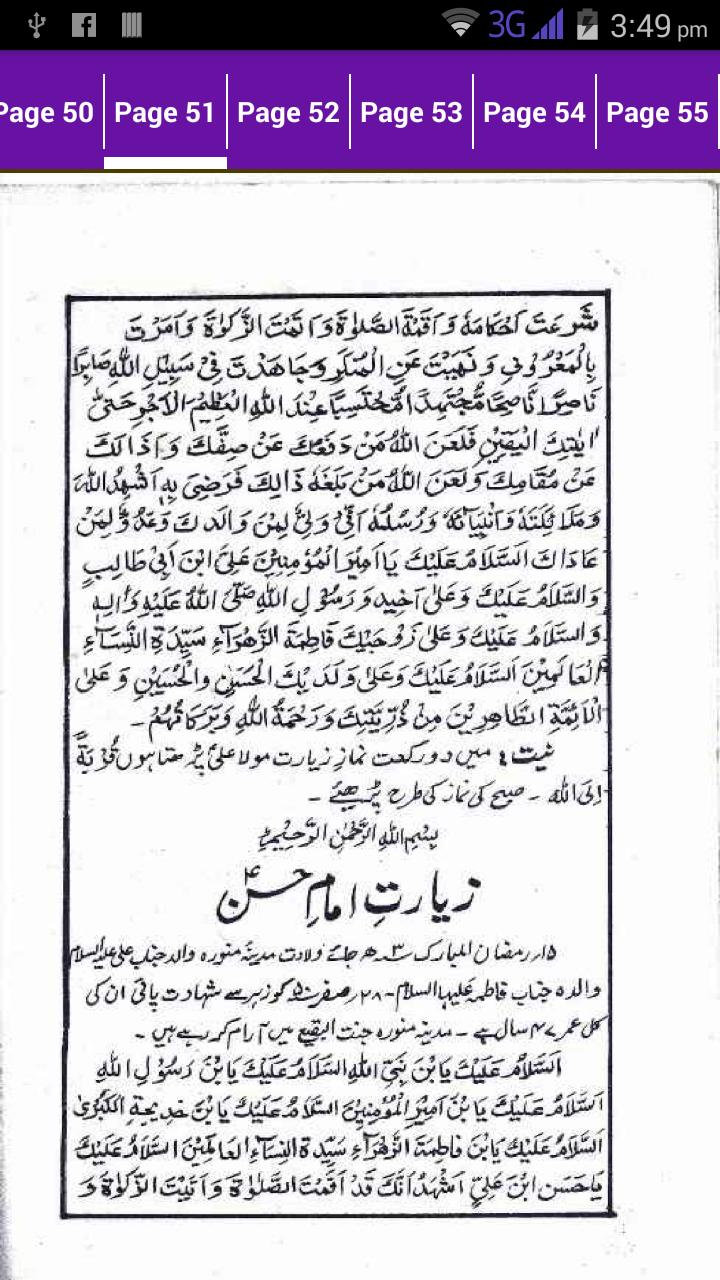 3G 3:49 pm
Page 50 Page 51 Page 52 Page 53 Page 54 Page 55
شَرَعْتَ اَحْكَامَهٗ وَ اَقَمْتَ الصَّلٰوةَ وَ اٰتَيْتَ الزَّكٰوةَ وَ اَمَرْتَ
بِالْمَعْرُوْفِ وَ نَهَيْتَ عَنِ الْمُنْكَرِ وَ جَاهَدْتَ فِيْ سَبِيْلِ اللّٰهِ صَابِرًا
نَاصِرًا نَاصِحًا مُّجْتَهِدًا مُّحْتَسِبًا عِنْدَ اللّٰهِ الْعَظِيْمِ الْاَجْرِ حَتّٰى
اَيٰتِكَ الْيَقِيْنِ فَلَعَنَ اللّٰهُ مَنْ دَفَعَكَ عَنْ صِفِّكَ وَ اَذَالَكَ
عَنْ مُقَامِكَ وَ لَعَنَ اللّٰهُ مَنْ بَلَغَهٗ ذَالِكَ فَرَضِىَ بِهٖ اَشْهِدُ اللّٰهَ
وَ مَلَائِكَتَهٗ وَ اَنْبِيَائَهٗ وَ رُسُلَهٗ اَنِّيْ وَلِيٌّ لِمَنْ وَالَاكَ وَ عَدُوٌّ لِّمَنْ
عَادَاكَ اَلسَّلَامُ عَلَيْكَ يَا اَمِيْرَ الْمُؤْمِنِيْنَ عَلِيَّ ابْنَ اَبِيْ طَالِبٍ
وَالسَّلَامُ عَلَيْكَ وَ عَلٰى اَخِيْهِ وَ رَسُوْلِ اللّٰهِ صَلَّى اللّٰهُ عَلَيْهِ وَاٰلِهٖ
وَالسَّلَامُ عَلَيْكَ وَ عَلٰى زَوْجَتِكَ فَاطِمَةَ الزَّهْرَاءِ سَيِّدَةِ النِّسَاءِ
الْعَالَمِيْنَ اَلسَّلَامُ عَلَيْكَ وَ عَلٰى وَلَدَيْكَ الْحَسَنِ وَالْحُسَيْنِ وَ عَلَى
الْاَئِمَّةِ الطَّاهِرِيْنَ مِنْ ذُرِّيَّتِكَ وَ رَحْمَةُ اللّٰهِ وَ بَرَكَاتُهُمْ۔
نیت: میں دو رکعت نمازِ زیارت مولا علیؑ پڑھتا ہوں قُرْبَةً
اِلَى اللّٰه ۔ صبح کی نماز کی طرح پڑھیئے ۔
بِسْمِ اللّٰهِ الرَّحْمٰنِ الرَّحِيْمِ
زیارتِ امامِ حسنؑ
۱۵؍ رمضان المبارک ۳ھ جائے ولادت مدینہ منورہ والد جناب علی علیہ السلام
والدہ جناب فاطمہ علیہا السلام۔ ۲۸؍ صفر ۵۰ کو زہر سے شہادت پائی ان کی
کل عمر ۴۷ سال ہے ۔ مدینہ منورہ جنت البقیع میں آرام کر رہے ہیں ۔
اَلسَّلَامُ عَلَيْكَ يَابْنَ نَبِيِّ اللّٰهِ السَّلَامُ عَلَيْكَ يَابْنَ رَسُوْلِ اللّٰهِ
اَلسَّلَامُ عَلَيْكَ يَابْنَ اَمِيْرِ الْمُؤْمِنِيْنَ السَّلَامُ عَلَيْكَ يَابْنَ خَدِيْجَةِ الْكُبْرٰى
اَلسَّلَامُ عَلَيْكَ يَابْنَ فَاطِمَةَ الزَّهْرَاءِ سَيِّدَةِ النِّسَاءِ الْعَالَمِيْنَ السَّلَامُ عَلَيْكَ
يَاحَسَنَ ابْنَ عَلِيٍّ اَشْهَدُ اَنَّكَ قَدْ اَقَمْتَ الصَّلٰوةَ وَ اٰتَيْتَ الزَّكٰوةَ وَ